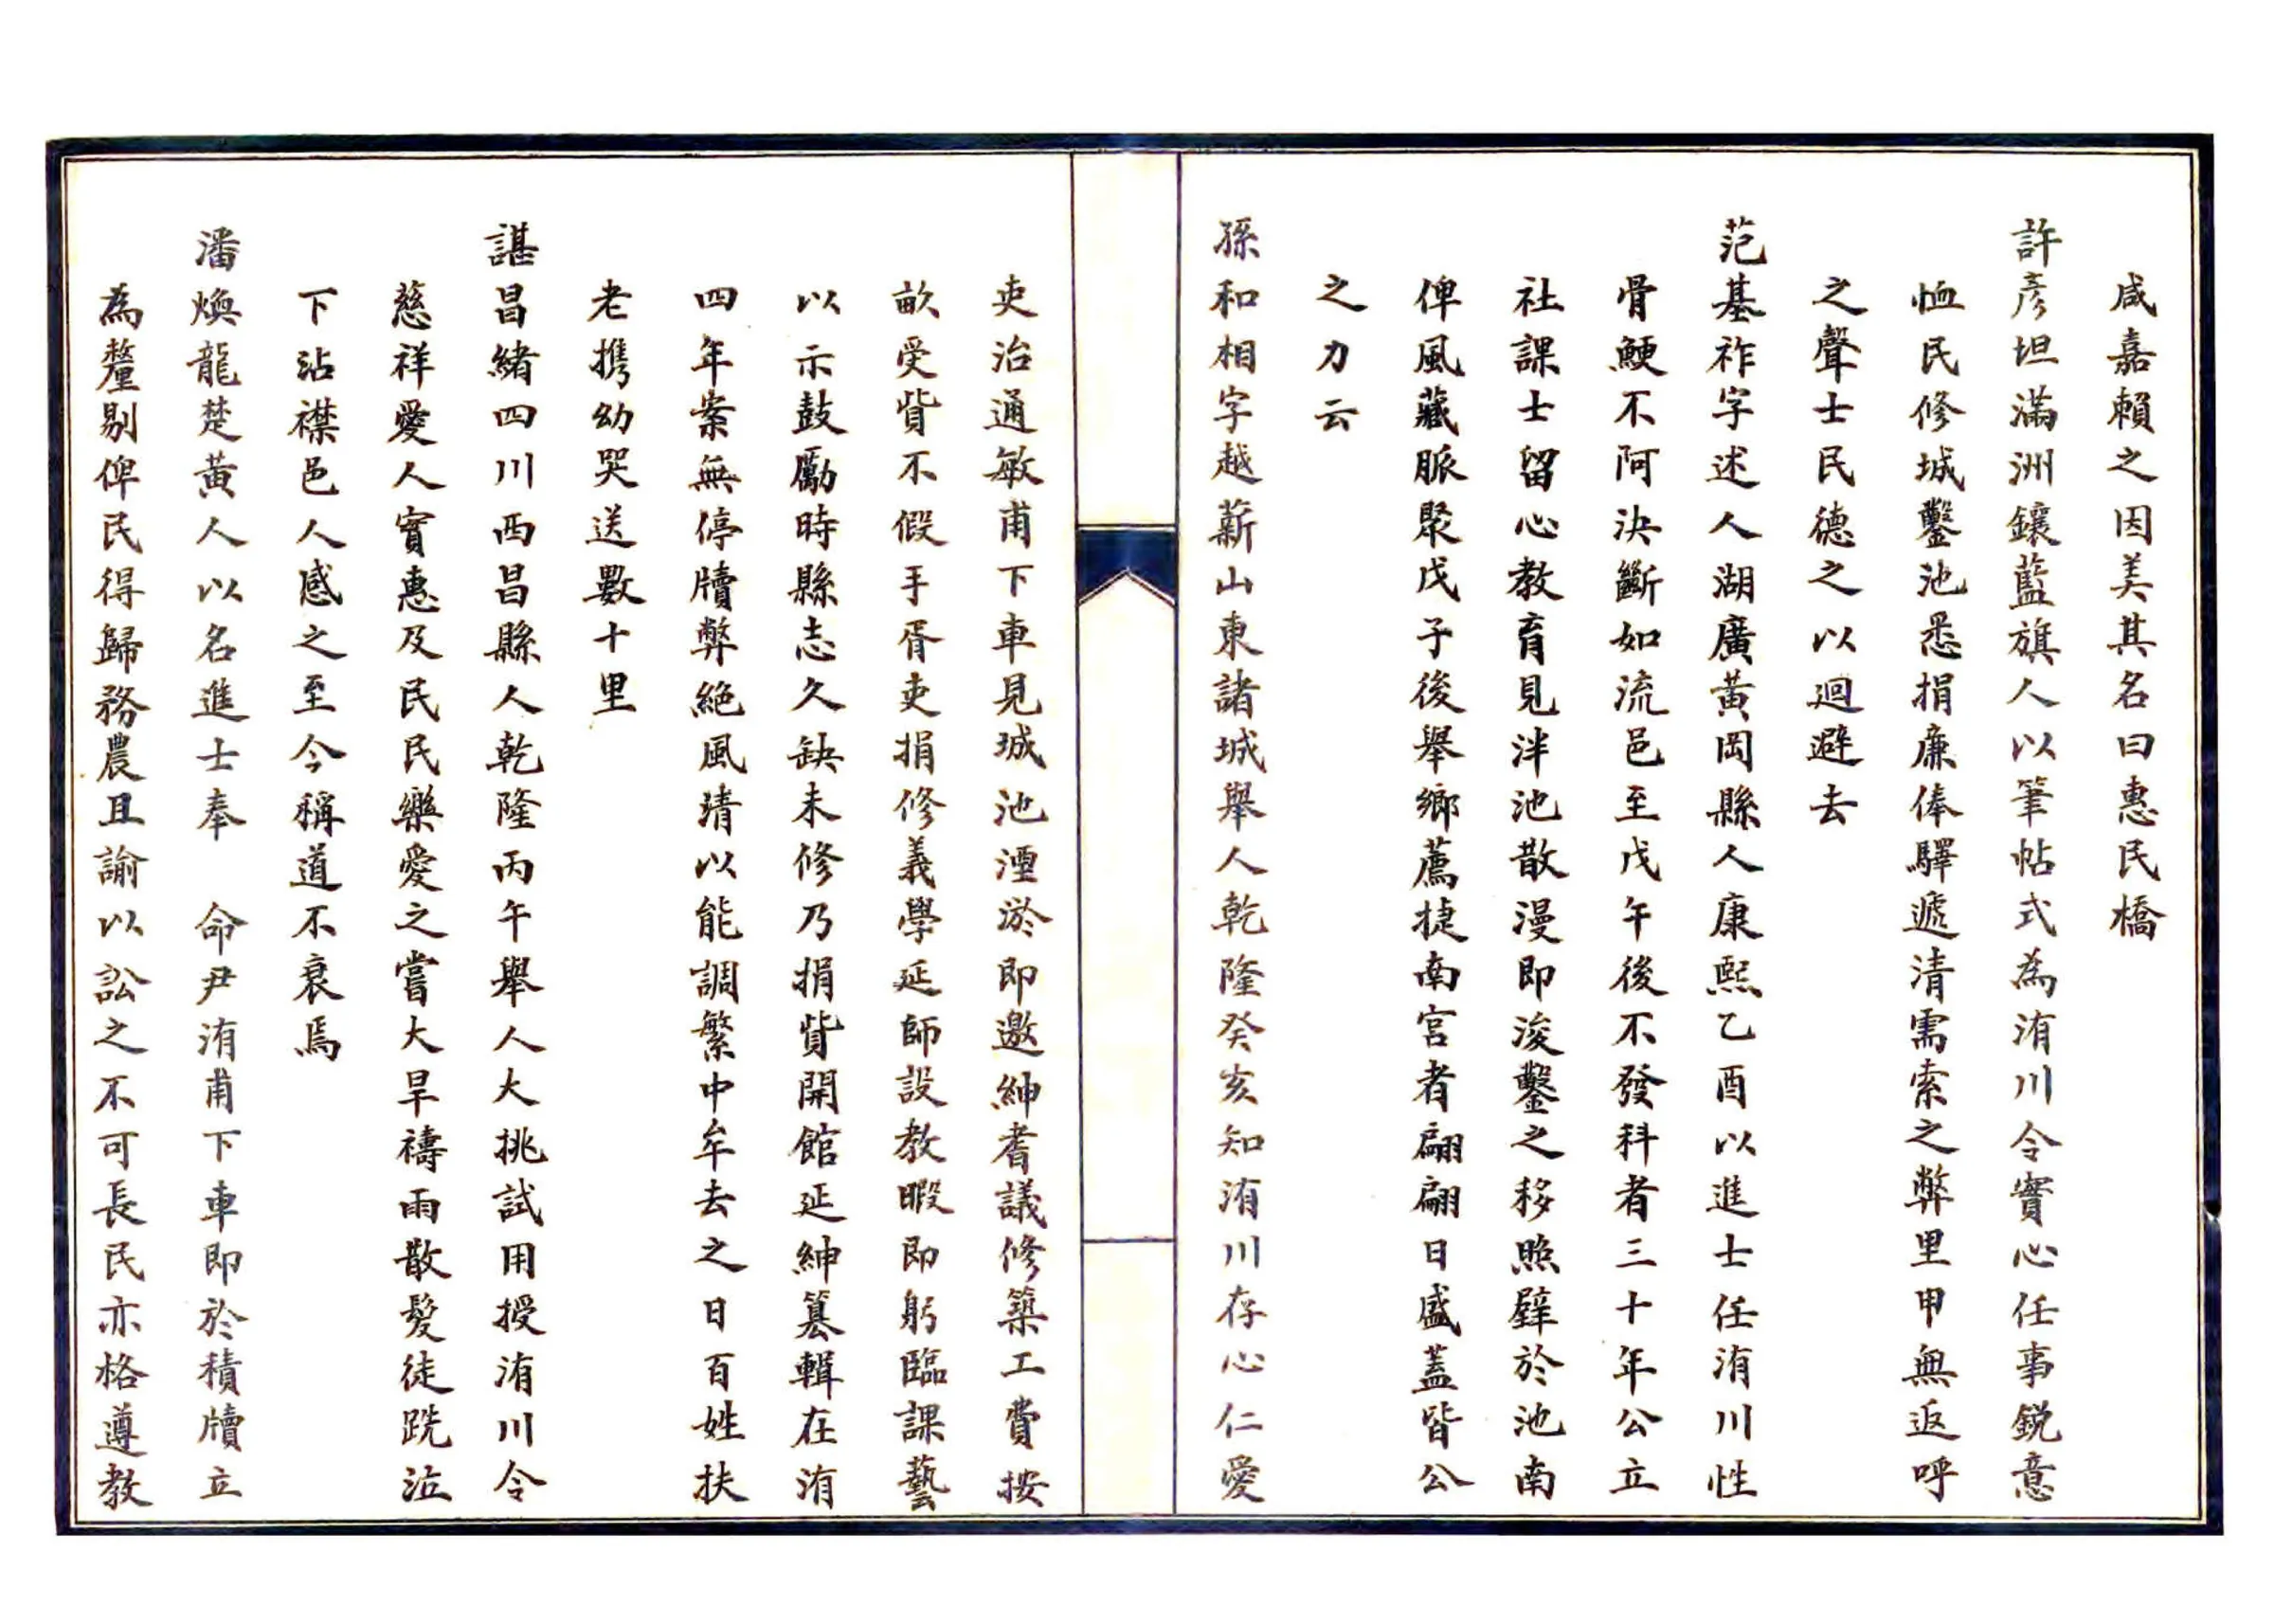 咸嘉賴之因美其名曰惠民橋
許彥坦滿洲鑲藍旗人以筆帖式為洧川令實心任事銳意
恤民修城鑿池悉捐廉俸驛遞清需索之弊里甲無返呼
之聲士民德之以迴避去
范基祚字述人湖廣黃岡縣人康熙乙酉以進士任洧川性
骨鯁不阿決斷如流邑至戊午後不發科者三十年公立
社課士留心教育見泮池散漫即浚鑿之移照壁於池南
俾風藏脈聚戊子後舉鄉薦捷南宮者翩翩日盛蓋皆公
之力云
孫和相字越薪山東諸城舉人乾隆癸亥知洧川存心仁愛
吏治通敏甫下車見城池湮淤即邀紳耆議修築工費按
畝受貲不假手胥吏捐修義學延師設教暇即躬臨課藝
以示鼓勵時縣志久缺未修乃捐貲開館延紳纂輯在洧
四年案無停牘弊絕風清以能調繁中牟去之日百姓扶
老攜幼哭送數十里
諶昌緒四川西昌縣人乾隆丙午舉人大挑試用授洧川令
慈祥愛人實惠及民民樂愛之嘗大旱禱雨散髮徒跣泣
下沾襟邑人感之至今稱道不衰焉
潘煥龍楚黃人以名進士奉 命尹洧甫下車即於積牘立
為釐剔俾民得歸務農且諭以訟之不可長民亦格遵教